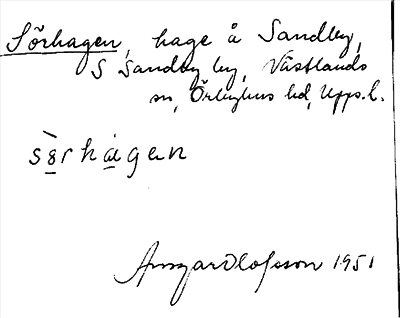 Sörhagen, hage å Sandby,
S Sandby by, Västlands
sn, Örbyhus hd, Upps.l.
sö̀rhàgen
Ansgar Olofsson 1951